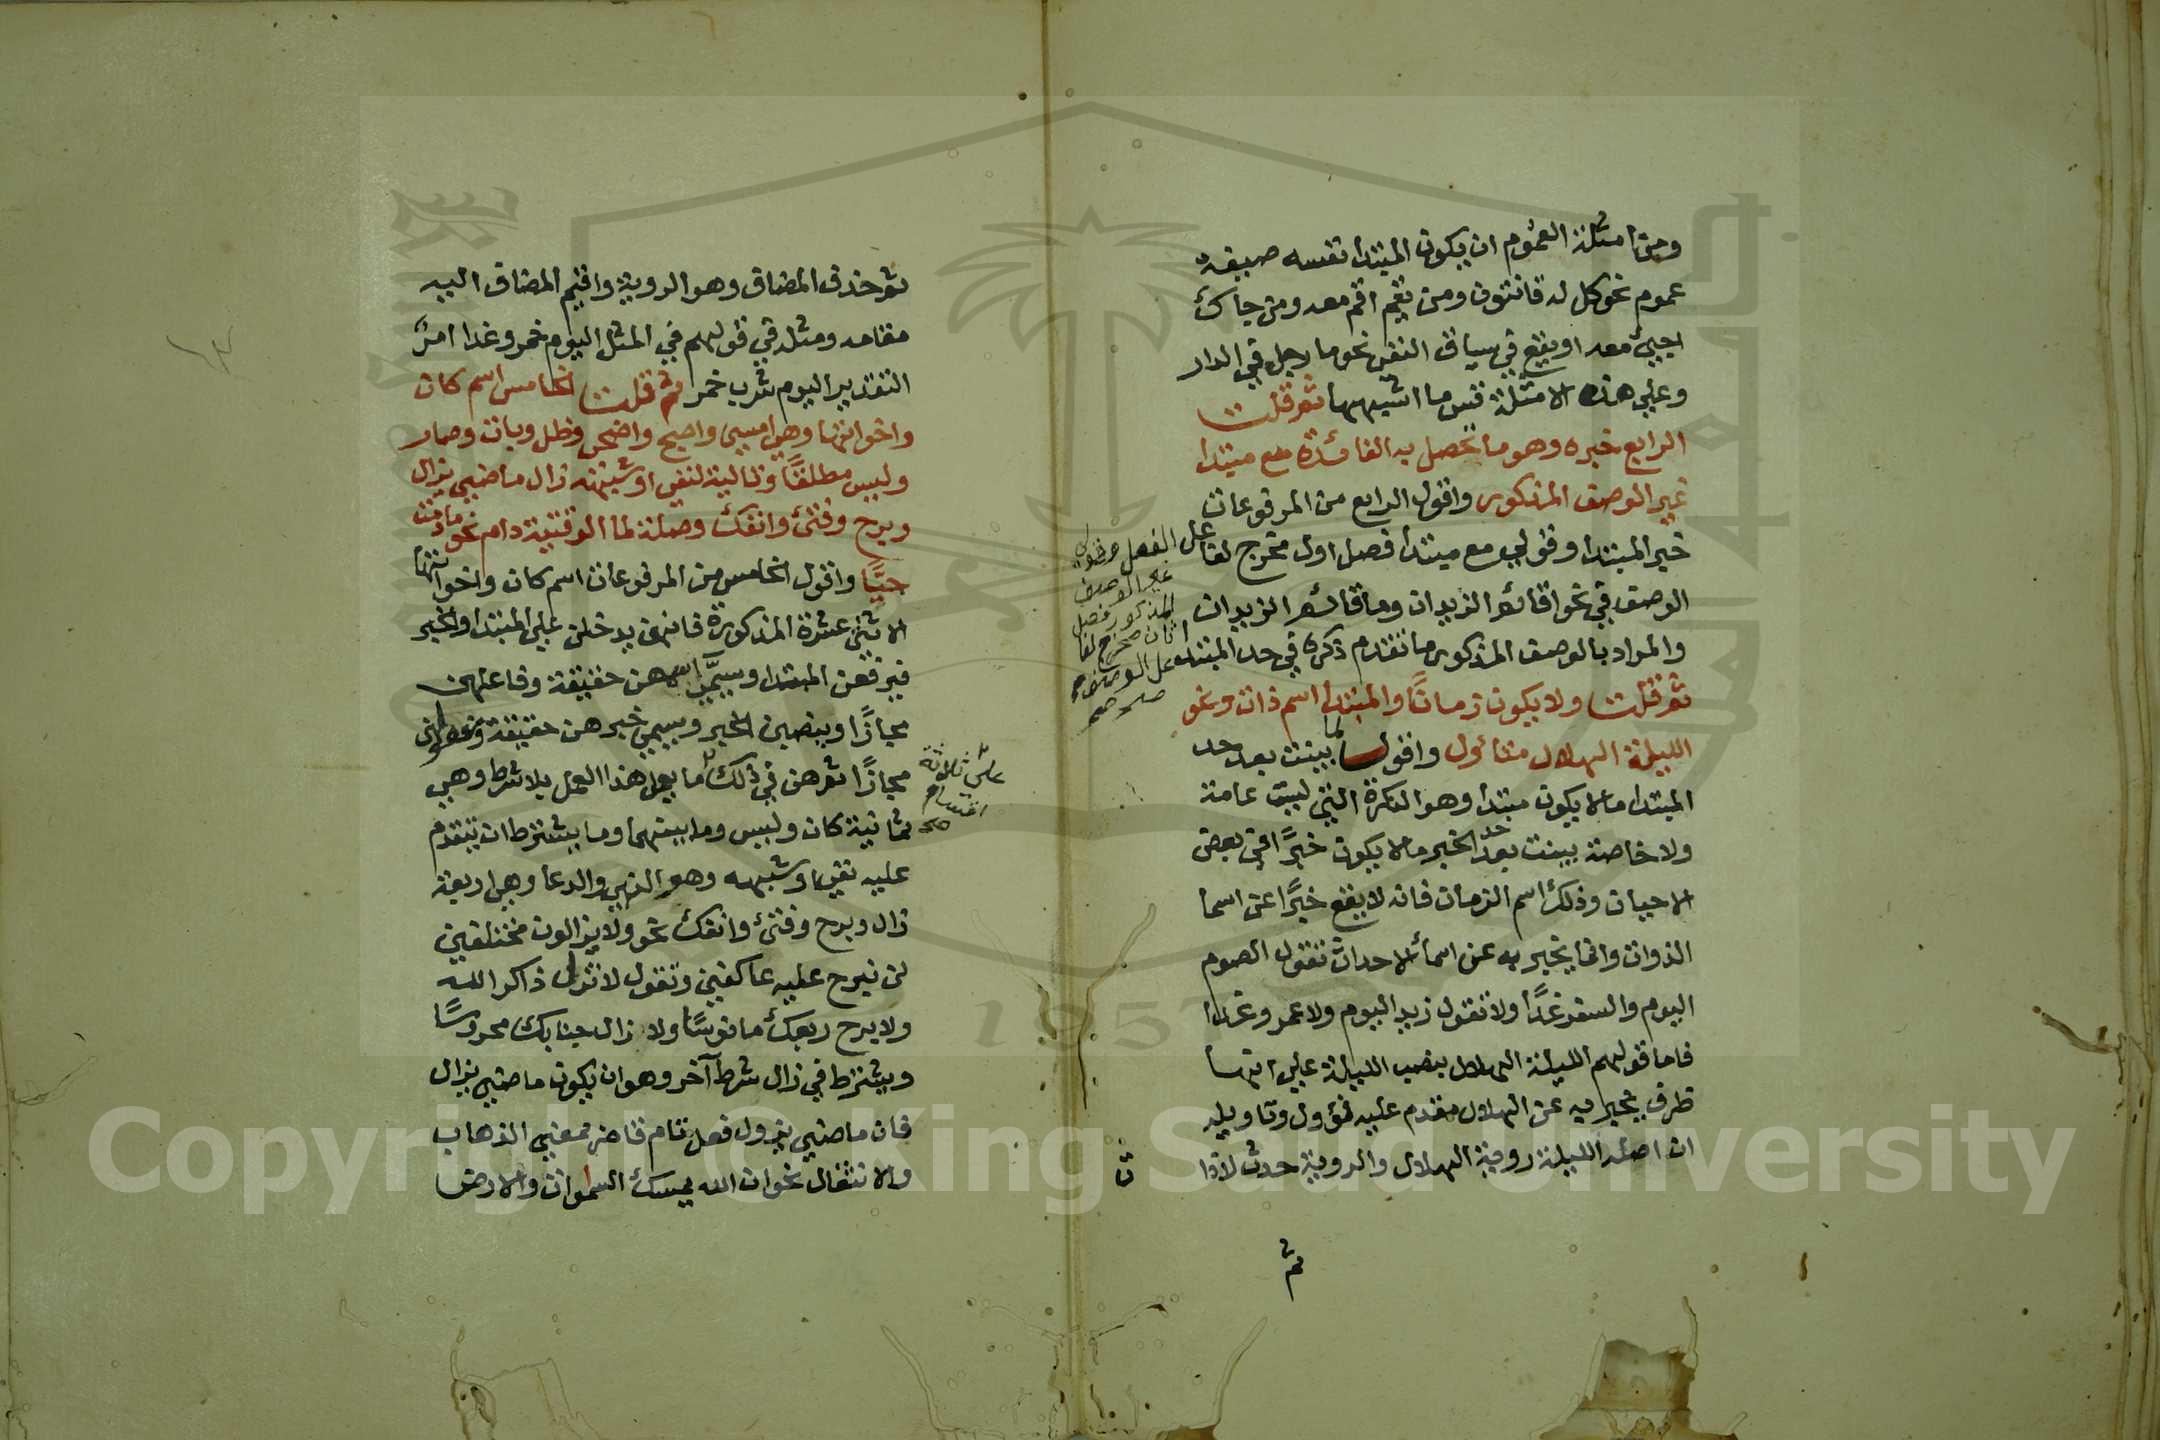 ومن امثلة العموم ان يكون المبتدا نفسه صيغة
عموم نحو كل له قانتون ومن يقم اقم معه ومن جاك
اجيئ معه او يقع في سياق النفي نحو ما رجل في الدار
وعلي هذه الامثلة قس ما اشبهها ثم قلت
الرابع خبره وهو ما تحصل به الفائدة مع مبتدا
غير الوصف المذكور واقول الرابع من المرفوعات
خبر المبتدا وقولي مع مبتدا فصل اول مخرج لفاعل الفعل وقولي
غير الوصف
المذكور فصل
ثان مخرج لفا
عل الوصف
صح
الوصف في نحو اقائم الزيدان وما قائم الزيدان
والمراد بالوصف المذكور ما تقدم ذكره في حد المبتدا
ثم قلت ولا يكون زمانًا والمبتدا اسم ذات ونحو
الليلة الهلال متأول واقول لما بينت بعد حد
المبتدا ما لا يكون مبتدا وهو النكرة التي ليست عامة
ولا خاصة بينت بعد حد الخبر ما لا يكون خبرًا في بعض
الاحيان وذلك اسم الزمان فانه لا يقع خبرًا عن اسما
الذوات وانما يخبر به عن اسمأ الاحداث تقول الصوم
اليوم والسفر غدًا ولا تقول زيد اليوم ولا عمرو غدا
فاما قولهم الليلة الهلال بنصب الليلة علي انها
ظرف يخبر به عن الهلال مقدم عليه فمؤول وتاويله
ان اصله الليلة روية الهلال والروية حدث لاذا
ت
ثم
ثم حذف المضاف وهو الروية واقيم المضاف اليه
مقامه ومثله في قولهم في المثل اليوم خمر وغدا امر
التقدير اليوم شرب خمر ثم قلت الخامس اسم كان
واخواتها وهي امسي واصبح واضحى وظل وبات وصار
وليس مطلقًا وتالية لنفي او شبهه زال ماضي يزال
وبرح وفتئ وانفك وصلة لما الوقتية دام نحو ما دمت
حيًّا واقول الخامس من المرفوعات اسم كان واخواتها
الاثني عشرة المذكورة فانهن يدخلن علي المبتدا والخبر
فيرفعن المبتدا ويسمي اسمهن حقيقة وفاعلهن
مجازًا وينصبن الخبر ويسمي خبرهن حقيقة ومفعولهن
مجازًا ثم هن في ذلك علي ثلاثة
اقسام
صح
ما يعمل هذا العمل بلا شرط وهي
ثمانية كان وليس وما بينهما وما يشترط ان يتقدم
عليه نفي او شبهه وهو النهي والدعا وهي اربعة
زال وبرح وفتئ وانفك نحو ولا يزالون مختلفين
لن نبرح عليه عاكفين وتقول لا تزل ذاكر الله
ولا برح ربعك مانوسًا ولا زال جنابك محروسًا
ويشترط في زال شرط آخر وهو ان يكون ماضي يزال
فان ماضي يزول فعل تام قاصر بمعني الذهاب
والانتقال نحو ان الله يمسك السموات والارض
Copyright © King Saud University
1957